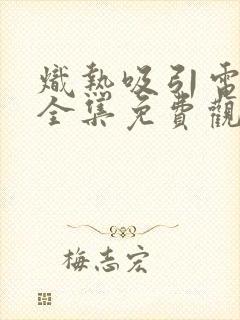 熾熱吸引電
全集免費觀
梅志宏